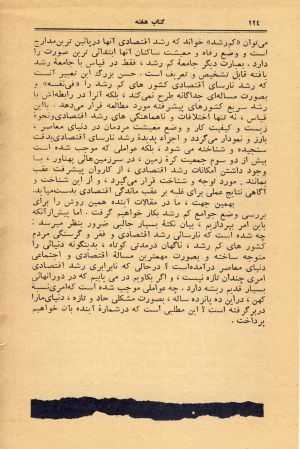 ۱۲۴ کتاب هفته
می‌توان «کم‌رشد» خواند که رشد اقتصادی آنها درپائین ترین‌مدارج
است و وضع رفاه و معیشت ساکنان آنها ابتدائی ترین صورت را
دارد . بصورت دیگر جامعهٔ کم رشد ، فقط در قیاس با جامعهٔ رشد
یافته قابل تشخیص و تعریف است . حسن بزرگ این تعبیر آنست
که رشد نارسای اقتصادی کشور های کم رشد را «فی‌نفسه» و
بصورت مساله‌ای جداگانه طرح نمی‌کند ، بلکه آنرا در رابطه‌اش با
رشد سریع کشورهای پیشرفته مورد مطالعه قرار می‌دهد . بااین
قیاس ، نه تنها اختلافات و ناهماهنگی های رشد اقتصادی‌ونحوهٔ
زیست و کیفیت کار و وضع معیشت مردمان در دنیای معاصر ،
بارز و نمودار می‌گردد و اجزاء پدیدهٔ رشد نارسای اقتصادی‌بدقت
سنجیده و شناخته می شود ، بلکه عواملی که موجب شده است
بیش از دو سوم جمعیت کرهٔ زمین ، در سرزمین‌هائی پهناور ، با
وجود داشتن امکانات رشد اقتصادی ، از کاروان پیشرفت عقب
بمانند . مورد توجه و شناخت قرار می‌گیرد ، و از این شناخت و
آگاهی نتایج عملی برای غلبه بر عقب ماندگی اقتصادی بدست‌میاید.
بهمین جهت ، ما در مقالات آینده همین روش را برای
بررسی وضع جوامع کم رشد بکار خواهیم گرفت . اما پیش‌ازآنکه
باین امر بپردازیم ، بیان نکتهٔ بسیار جالبی ضرور بنظر میرسد :
چه شده است که نارسائی رشد اقتصادی و فقر و گرسنگی مردم
کشور های کم رشد ، ناگهان درمدتی کوتاه ، بدینگونه دنیائی را
متوجه ساخته و بصورت مهمترین مسالهٔ اقتصادی و اجتماعی
دنیای معاصر درآمده‌است ؟ درحالی که نابرابری رشد اقتصادی
امری چندان تازه نیست ، و اگر بکاویم در می یابیم که در دورانهائی
بسیار قدیم ریشه دارد . چه عواملی موجب شده است که‌امری‌نسبة
کهن، در این ده پانزده ساله ، بصورت مشکلی حاد و تازه ، دنیای‌مارا
دربرگرفته است ؟ این مطلبی است که درشمارهٔ آینده بآن خواهیم
پرداخت .